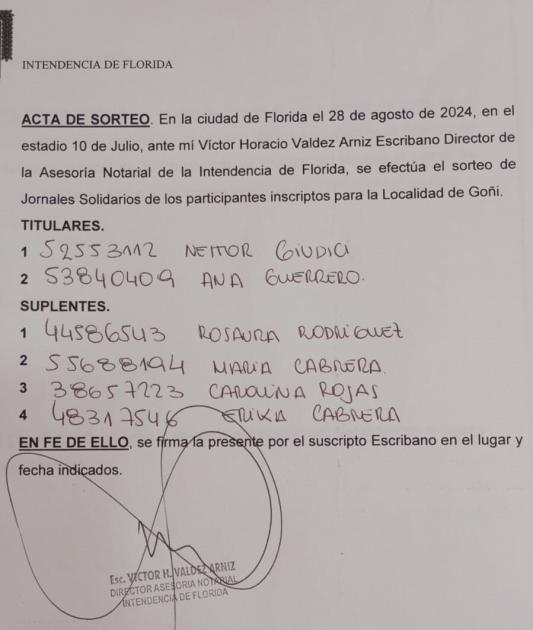 INTENDENCIA DE FLORIDA
ACTA DE SORTEO. En la ciudad de Florida el 28 de agosto de 2024, en el
estadio 10 de Julio, ante mí Víctor Horacio Valdez Arniz Escribano Director de
la Asesoría Notarial de la Intendencia de Florida, se efectúa el sorteo de
Jornales Solidarios de los participantes inscriptos para la Localidad de Goñi.
TITULARES.
1 52553112 NEITOR GIUDICI
2 53840409 ANA GUERRERO.
SUPLENTES.
1 44586543 ROSAURA RODRIGUEZ
2 55688194 MARIA CABRERA.
3 38657223 CAROLINA ROJAS
4 48317546 ERIKA CABRERA
EN FE DE ELLO, se firma la presente por el suscripto Escribano en el lugar y
fecha indicados.
Esc. VICTOR H. VALDEZ ARNIZ
DIRECTOR ASESORIA NOTARIAL
INTENDENCIA DE FLORIDA